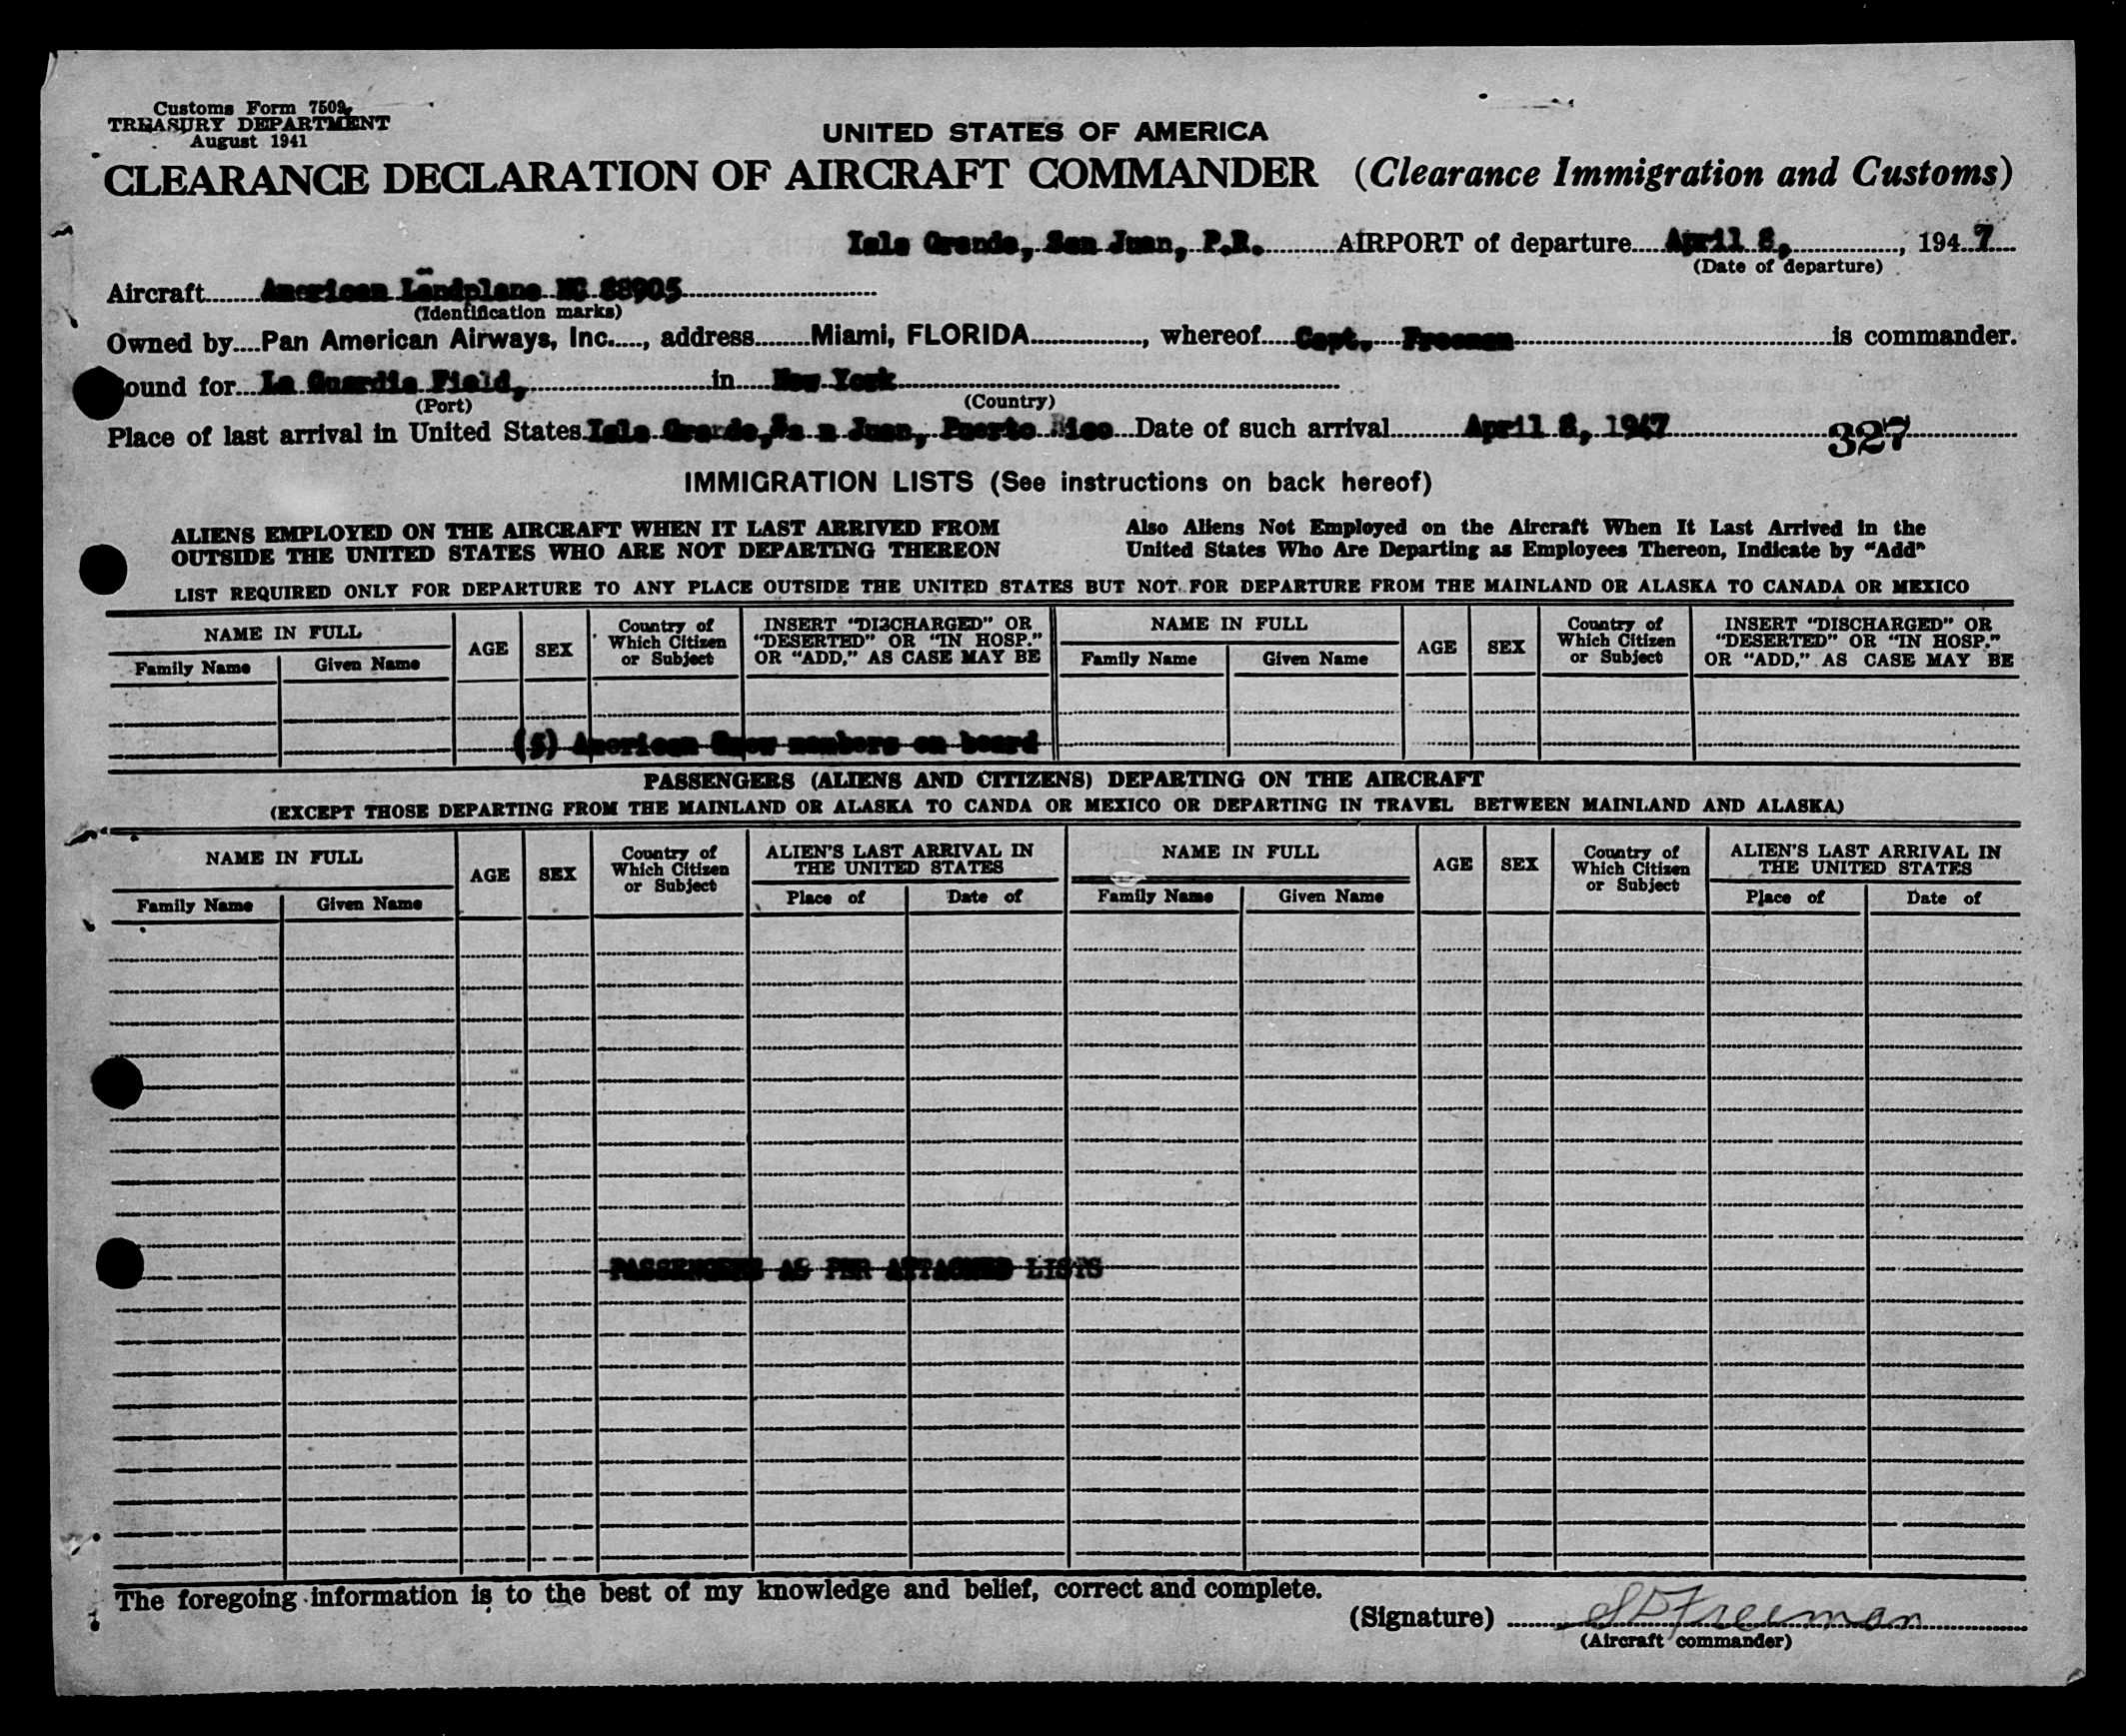 Customs Form 7509
TREASURY DEPARTMENT
August 1941
UNITED STATES OF AMERICA
CLEARANCE DECLARATION OF AIRCRAFT COMMANDER (Clearance Immigration and Customs)
Isla Grande, San Juan, P.R. AIRPORT of departure April 8, , 1947
(Date of departure)
Aircraft American Landplane NC 88905
(Identification marks)
Owned by Pan American Airways, Inc. , address Miami, FLORIDA , whereof Capt. Freeman is commander.
ound for La Guardia Field, in New York
(Port) (Country)
Place of last arrival in United States Isla Grande, Sa n Juan, Puerto Rico Date of such arrival April 8, 1947 327
IMMIGRATION LISTS (See instructions on back hereof)
ALIENS EMPLOYED ON THE AIRCRAFT WHEN IT LAST ARRIVED FROM Also Aliens Not Employed on the Aircraft When It Last Arrived in the
OUTSIDE THE UNITED STATES WHO ARE NOT DEPARTING THEREON United States Who Are Departing as Employees Thereon, Indicate by "Add"
LIST REQUIRED ONLY FOR DEPARTURE TO ANY PLACE OUTSIDE THE UNITED STATES BUT NOT FOR DEPARTURE FROM THE MAINLAND OR ALASKA TO CANADA OR MEXICO
NAME IN FULL AGE SEX Country of Which Citizen or Subject INSERT "DISCHARGED" OR "DESERTED" OR "IN HOSP." OR "ADD," AS CASE MAY BE NAME IN FULL AGE SEX Country of Which Citizen or Subject INSERT "DISCHARGED" OR "DESERTED" OR "IN HOSP." OR "ADD," AS CASE MAY BE
Family Name Given Name Family Name Given Name
(5) American Crew members on board
PASSENGERS (ALIENS AND CITIZENS) DEPARTING ON THE AIRCRAFT
(EXCEPT THOSE DEPARTING FROM THE MAINLAND OR ALASKA TO CANDA OR MEXICO OR DEPARTING IN TRAVEL BETWEEN MAINLAND AND ALASKA)
NAME IN FULL AGE SEX Country of Which Citizen or Subject ALIEN'S LAST ARRIVAL IN THE UNITED STATES NAME IN FULL AGE SEX Country of Which Citizen or Subject ALIEN'S LAST ARRIVAL IN THE UNITED STATES
Family Name Given Name Place of Date of Family Name Given Name Place of Date of
PASSENGERS AS PER ATTACHED LISTS
The foregoing information is to the best of my knowledge and belief, correct and complete.
(Signature) SD Freeman
(Aircraft commander)